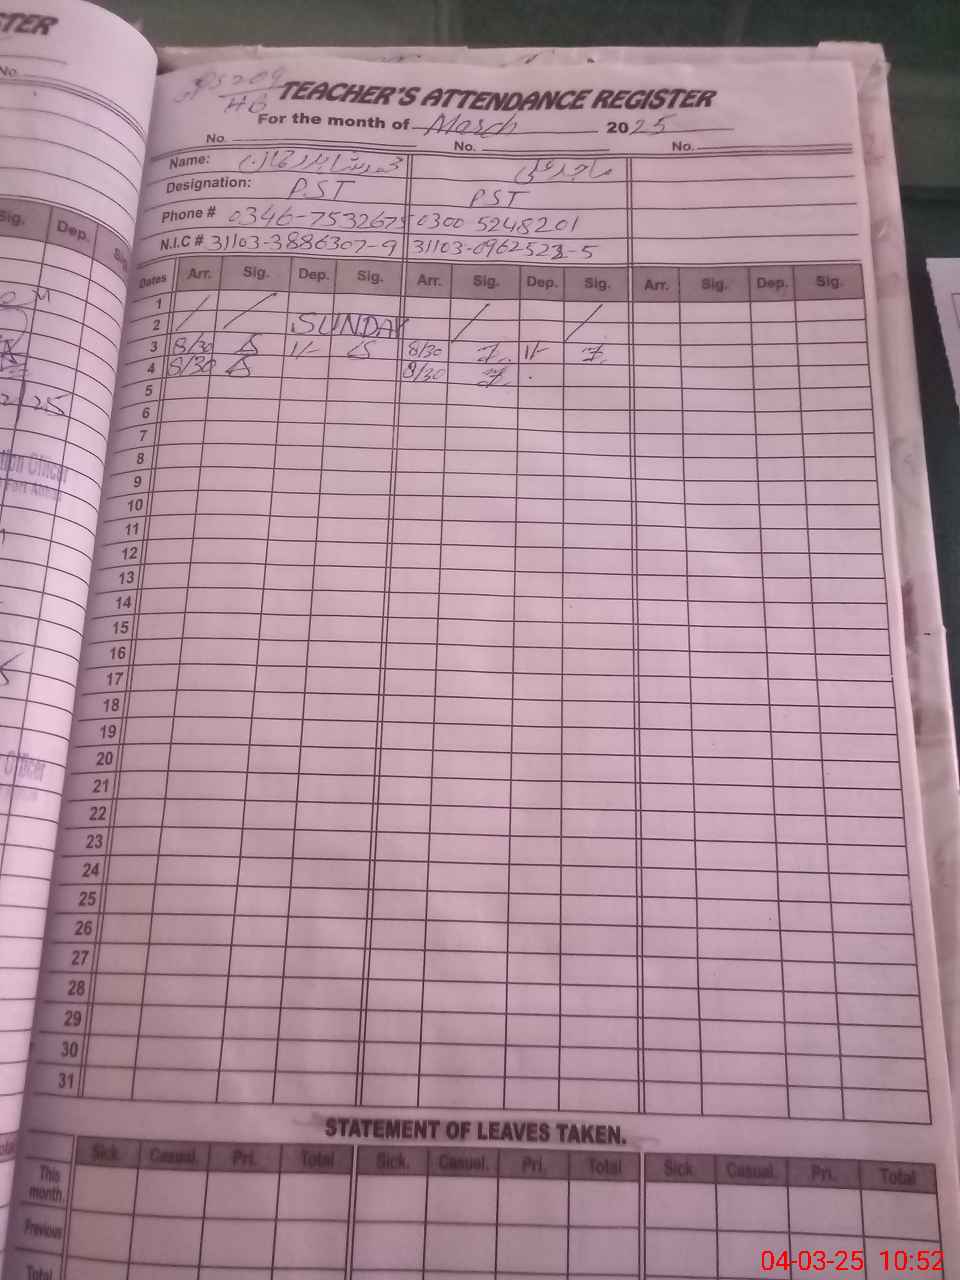 STER
No.
GPS 209
HB
TEACHER'S ATTENDANCE REGISTER
For the month of March 2025
No. No. No.
Name: ماجد علی
Designation: P.ST PST
Phone # 0346-7532675 0300 5248201
N.I.C # 31103-3886307-9 31103-0962523-5
Sig. Dep. Sig.
Dates Arr. Sig. Dep. Sig. Arr. Sig. Dep. Sig. Arr. Sig. Dep. Sig.
1
2 SUNDAY
3 8/30 1/- 8/30 1/-
4 8/30 8/30
5
6
7
8
9
10
11
12
13
14
15
16
17
18
19
20
21
22
23
24
25
26
27
28
29
30
31
Officer
STATEMENT OF LEAVES TAKEN.
Sick. Casual. Pri. Total Sick. Casual. Pri. Total Sick Casual. Pri. Total
This
month.
Previous
Total
04-03-25 10:52